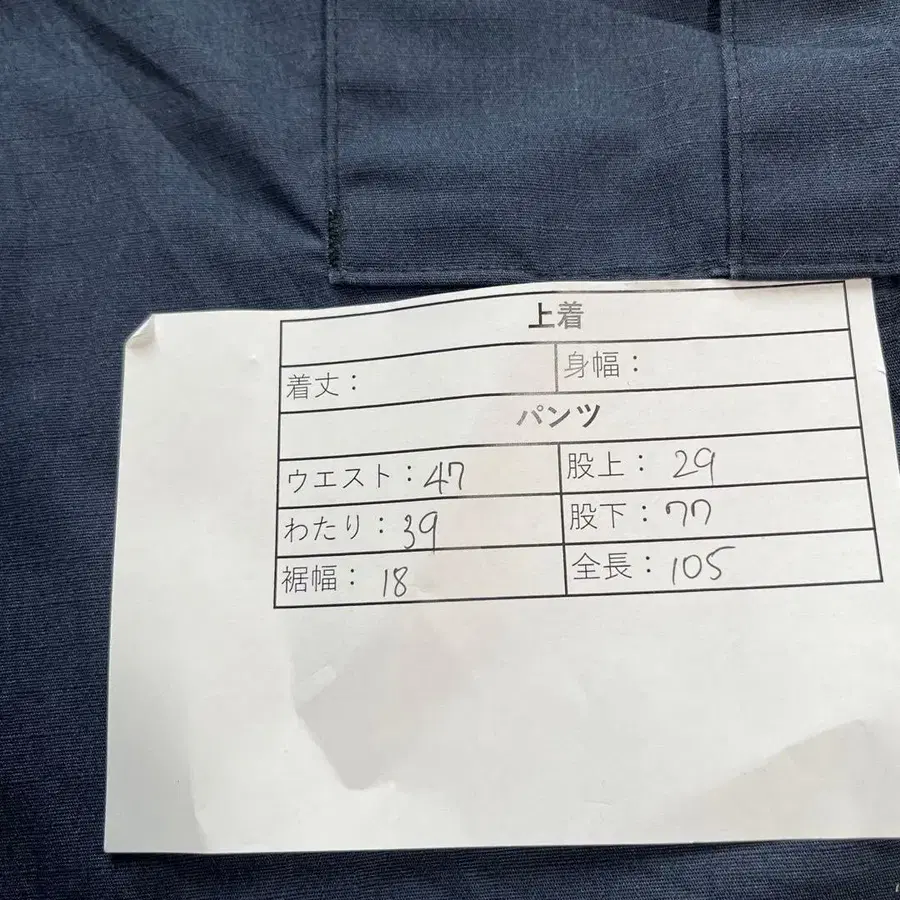 上着
着丈： 身幅：
パンツ
ウエスト：47 股上：29
わたり：39 股下：77
裾幅：18 全長：105